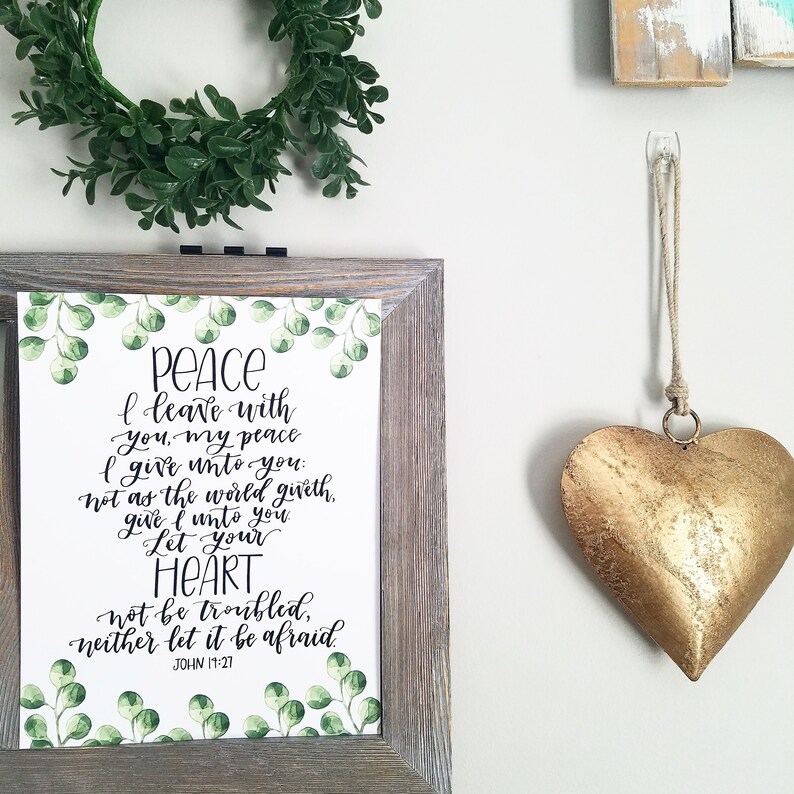 PEACE
I leave with
you, my peace
I give unto you:
not as the world giveth,
give I unto you.
Let your
HEART
not be troubled,
neither let it be afraid.
JOHN 14:27